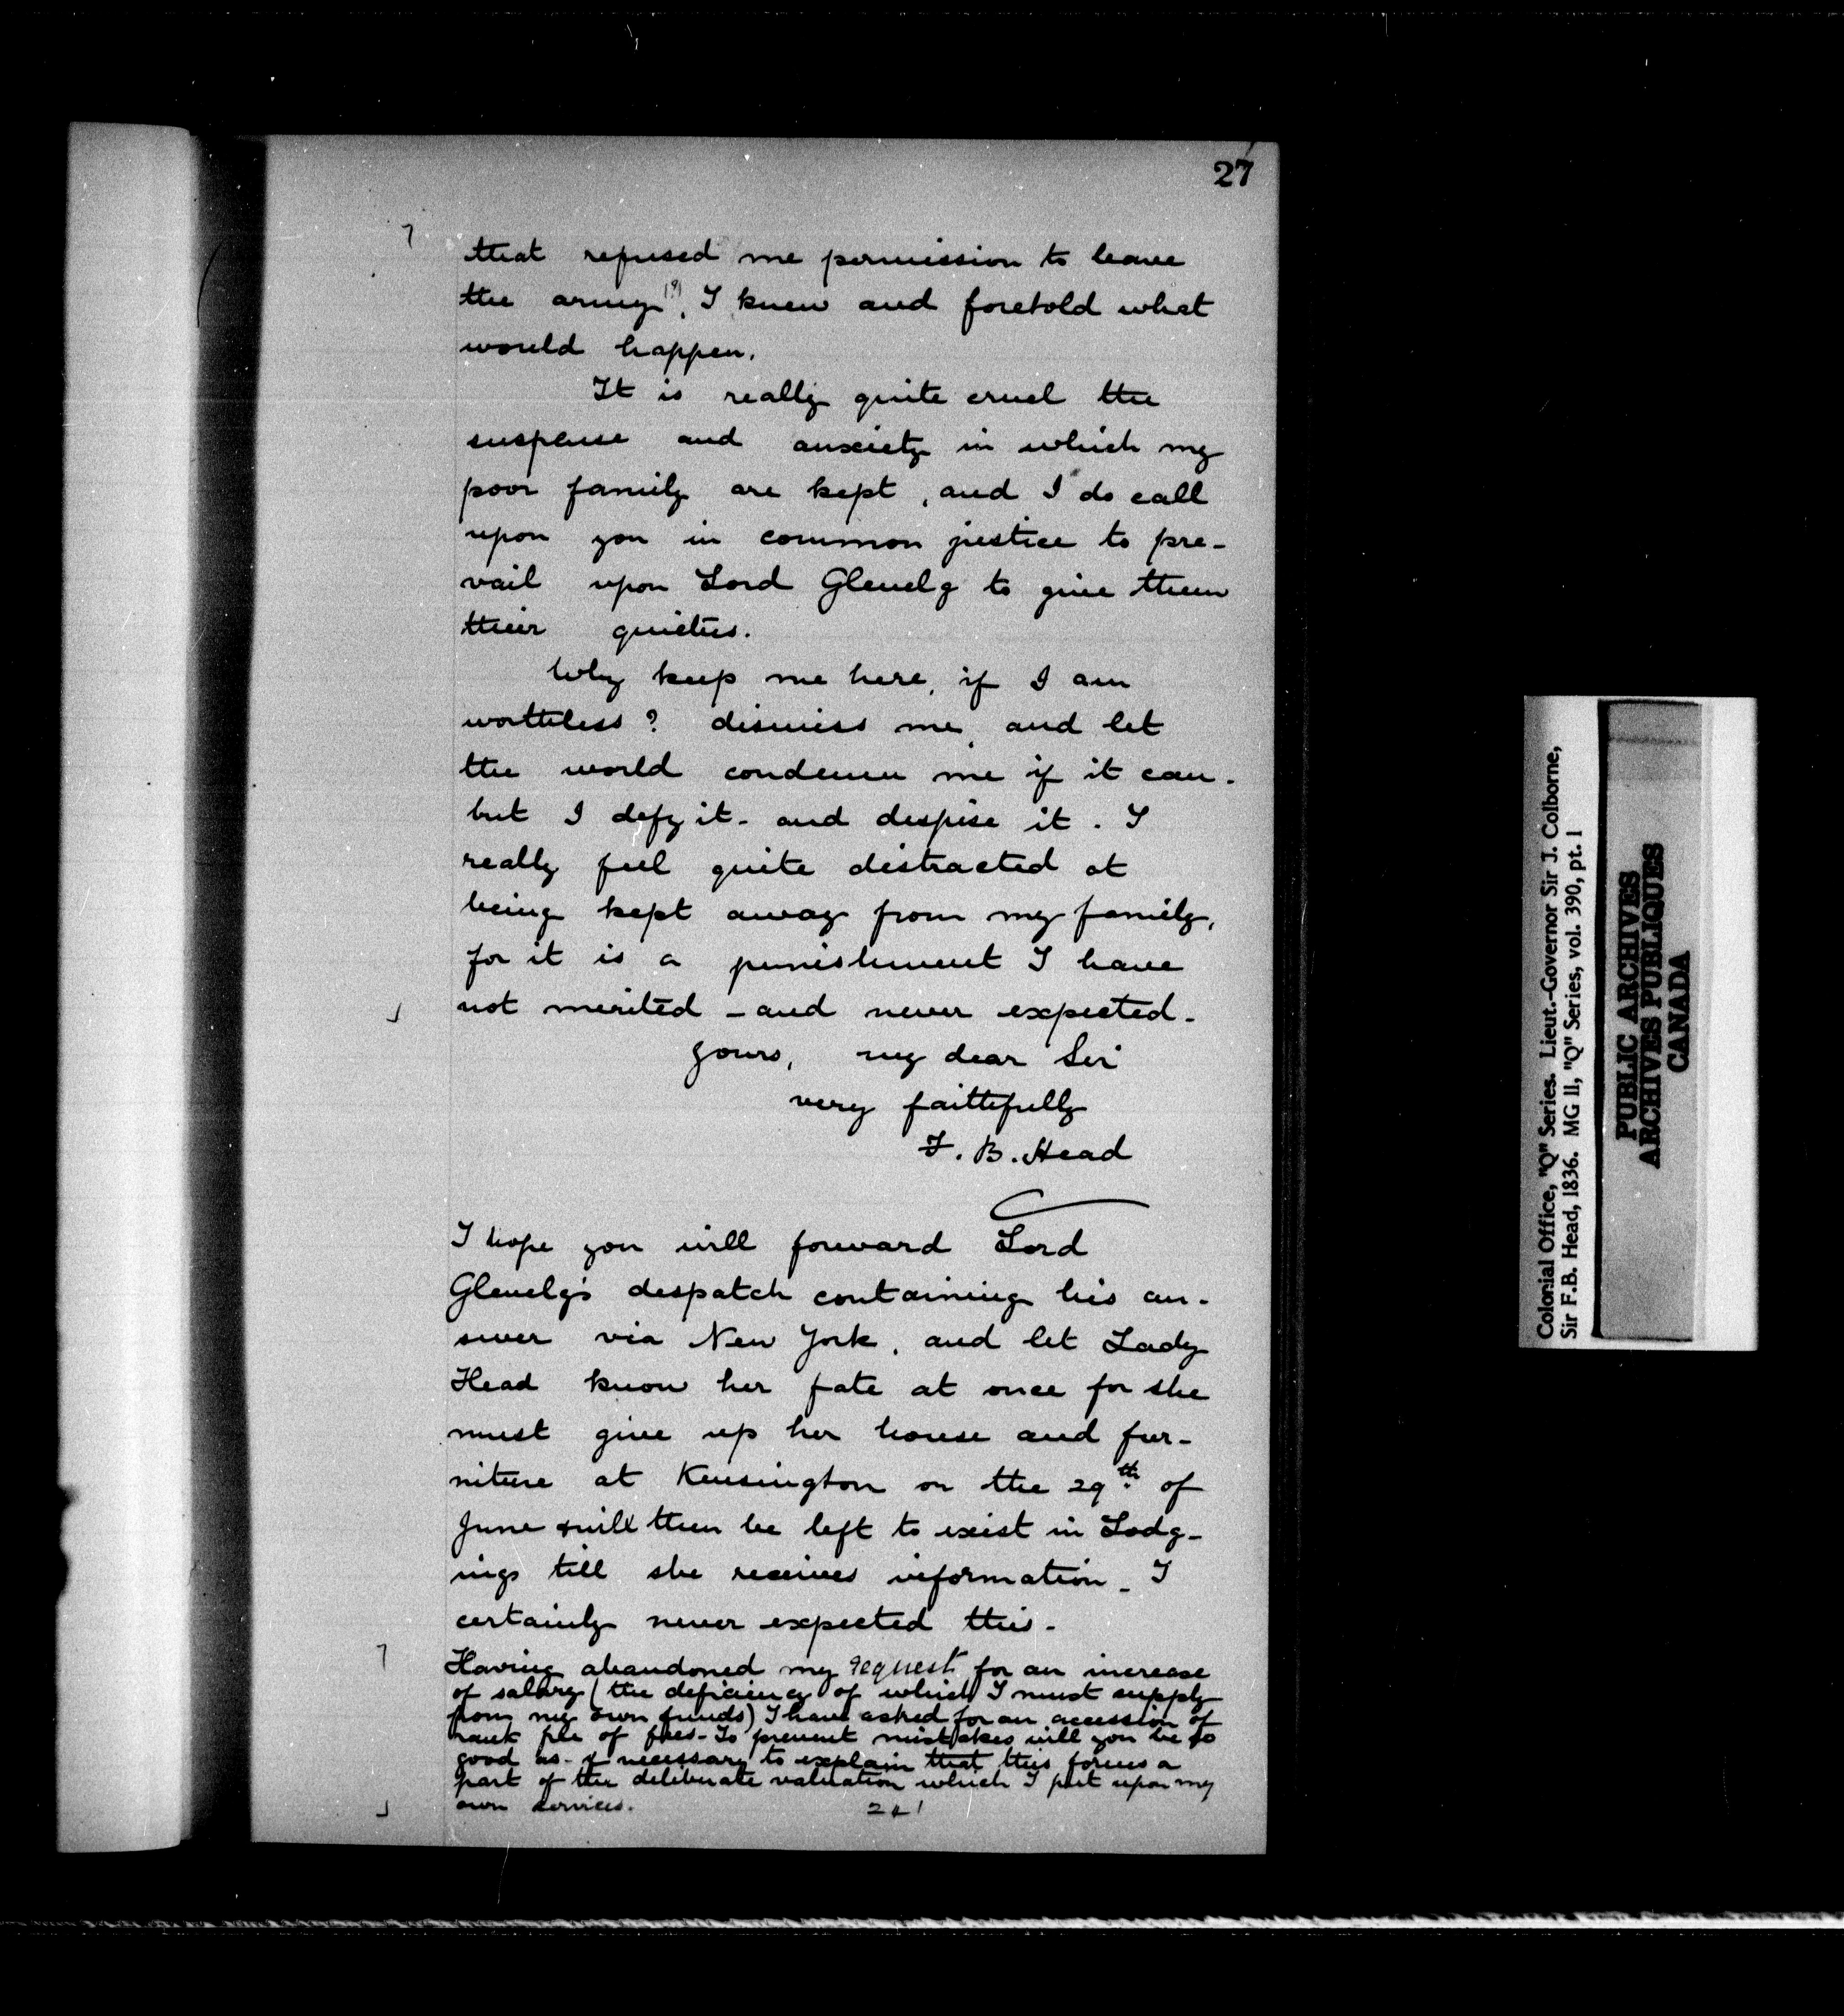 27
that refused me permission to leave
the army (?), I knew and foretold what
would happen.
It is really quite cruel the
suspense and anxiety in which my
poor family are kept, and I do call
upon you in common justice to pre-
vail upon Lord Glenelg to give them
their quietus.
Why keep me here, if I am
worthless? dismiss me, and let
the world condemn me if it can -
but I defy it - and despise it. I
really feel quite distracted at
being kept away from my family,
for it is a punishment I have
not merited - and never expected -
yours, my dear Sir
very faithfully
F. B. Head
I hope you will forward Lord
Glenelg's despatch containing his an-
swer via New York, and let Lady
Head know her fate at once for she
must give up her house and fur-
niture at Kensington on the 29th of
June & will then be left to exist in Lodg-
ings till she receives information - I
certainly never expected this -
Having abandoned my request for an increase
of salary (the deficiency of which I must supply
from my own funds) I have asked for an accession of
rank free of fees - To prevent mistakes will you be so
good as - if necessary to explain that this forms a
part of the deliberate valuation which I put upon my
own services.
Colonial Office, "Q" Series. Lieut.-Governor Sir J. Colborne,
Sir F.B. Head, 1836. MG 11, "Q" Series, vol. 390, pt. 1
PUBLIC ARCHIVES
ARCHIVES PUBLIQUES
CANADA